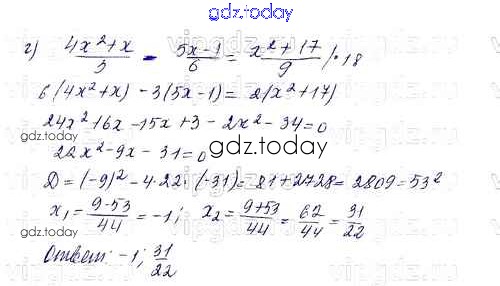 gdz.today
г) (4x²+x)/3 - (5x-1)/6 = (x²+17)/9 /·18
6(4x²+x) -3(5x-1)= 2(x²+17)
24x²+6x-15x+3-2x²-34=0
gdz.today
22x²-9x-31=0
gdz.today
D=(-9)²-4·22·(-31)=81+2728=2809=53²
x₁=(9-53)/44=-1; x₂=(9+53)/44=62/44=31/22
gdz.today
Ответ: -1; 31/22
gdz.today